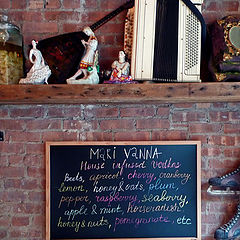 MARI VANNA
House infused vodkas
Beets, apricot, cherry, cranberry,
lemon, honey & oats, plum,
pepper, raspberry, seaberry,
apple & mint, horseradish
honey & nuts, pomegranate, etc